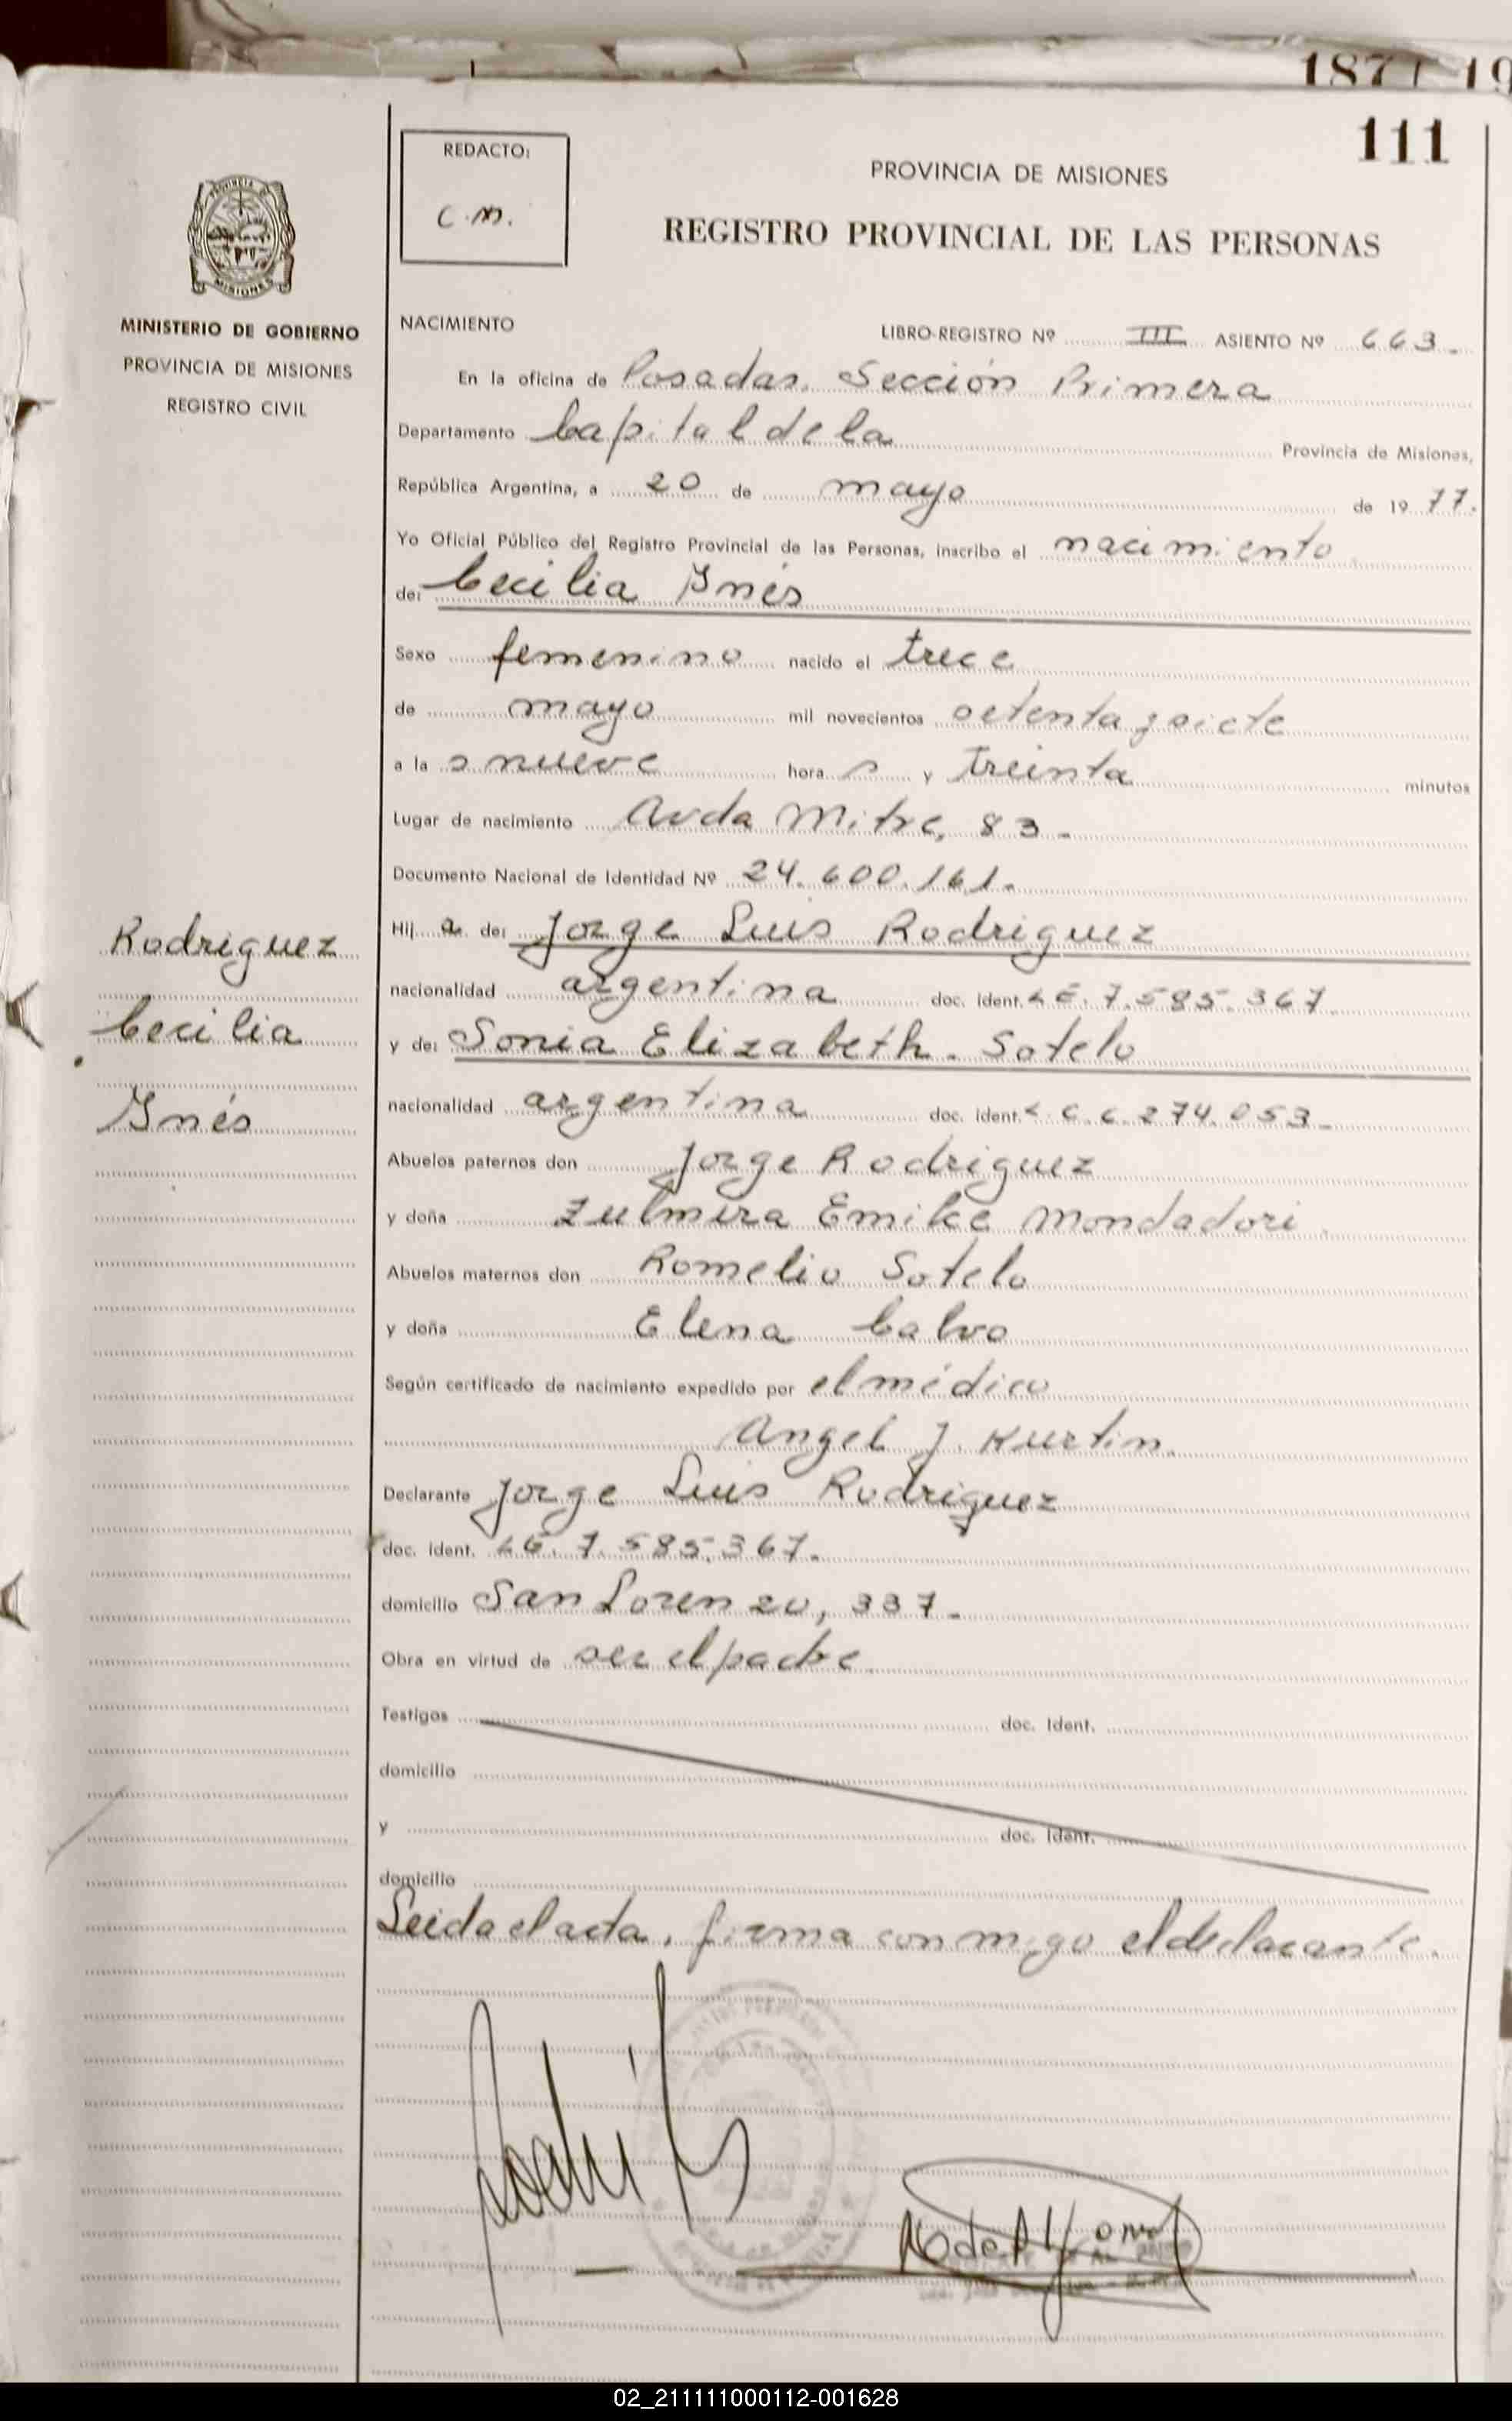 187 19
111
REDACTO:
C.M.
PROVINCIA DE MISIONES
REGISTRO PROVINCIAL DE LAS PERSONAS
PROVINCIA DE
MISIONES
MINISTERIO DE GOBIERNO
PROVINCIA DE MISIONES
REGISTRO CIVIL
NACIMIENTO
LIBRO-REGISTRO Nº III ASIENTO Nº 663.
En la oficina de Posadas. Sección Primera
Departamento Capital de la Provincia de Misiones,
República Argentina, a 20 de mayo de 1977.
Yo Oficial Público del Registro Provincial de las Personas, inscribo el nacimiento
de: Cecilia Ynés
Sexo femenino nacido el trece
de mayo mil novecientos setenta y siete
a la s nueve hora s y treinta minutos
Lugar de nacimiento Avda Mitre, 83.
Documento Nacional de Identidad Nº 24.600.161.
Hij a de: Jorge Luis Rodriguez
nacionalidad argentina doc. ident. LE. 7.585.367
y de: Sonia Elizabeth. Sotelo
nacionalidad argentina doc. ident. LC 6.274.053.
Abuelos paternos don Jorge Rodriguez
y doña Zulmira Emilce Mondadori
Abuelos maternos don Romelio Sotelo
y doña Elena Calvo
Según certificado de nacimiento expedido por el médico
Angel J. Kurtin.
Declarante Jorge Luis Rodriguez
doc. ident. LE. 7.585.367.
domicilio San Lorenzo, 337.
Obra en virtud de ser el padre
Testigos doc. Ident.
domicilio
y doc. Ident.
domicilio
Leida el acta, firma conmigo el declarante.
Rodriguez
Cecilia
Ynés
02_211111000112-001628